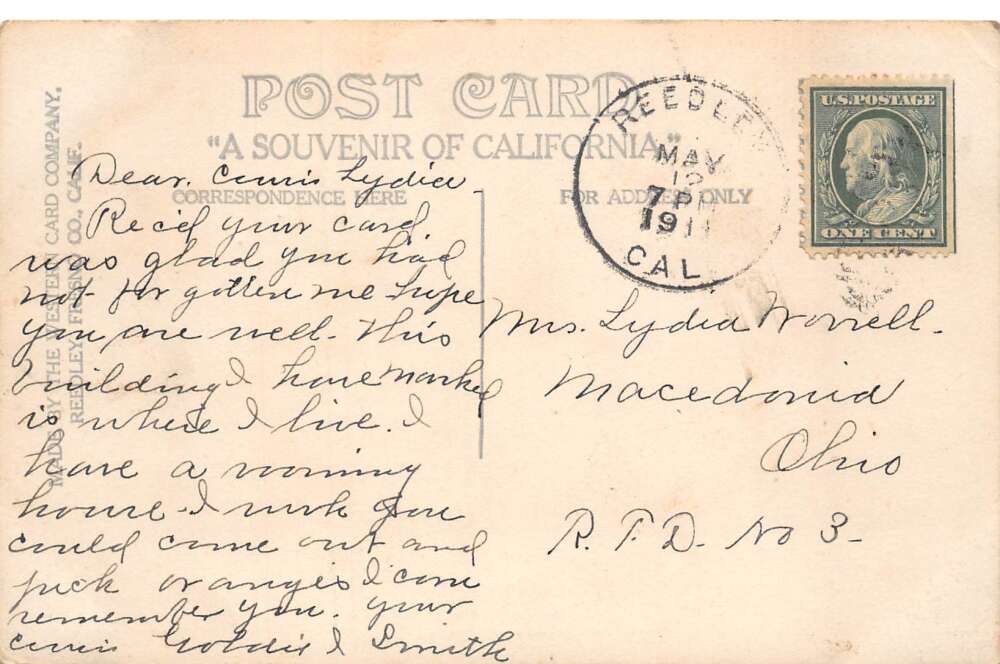 POST CARD
"A SOUVENIR OF CALIFORNIA."
CORRESPONDENCE HERE
FOR ADDRESS ONLY
MADE BY THE WESTERN CARD COMPANY.
REEDLEY FRESNO CO., CALIF.
REEDLEY
MAY
12
7 PM
1911
CAL.
U.S. POSTAGE
ONE CENT
Dear. Cousis Lydia.
Rec'd your card
was glad you had
not for gotten me hope
you are well. This
building I have marked
is where I live. I
have a rooming
house. I wish you
could come out and
pick oranges I can
remember you. your
cousis Goldie I Smith
Mrs. Lydia Worrell.
Macedonia
Ohio
R.F.D. No 3-